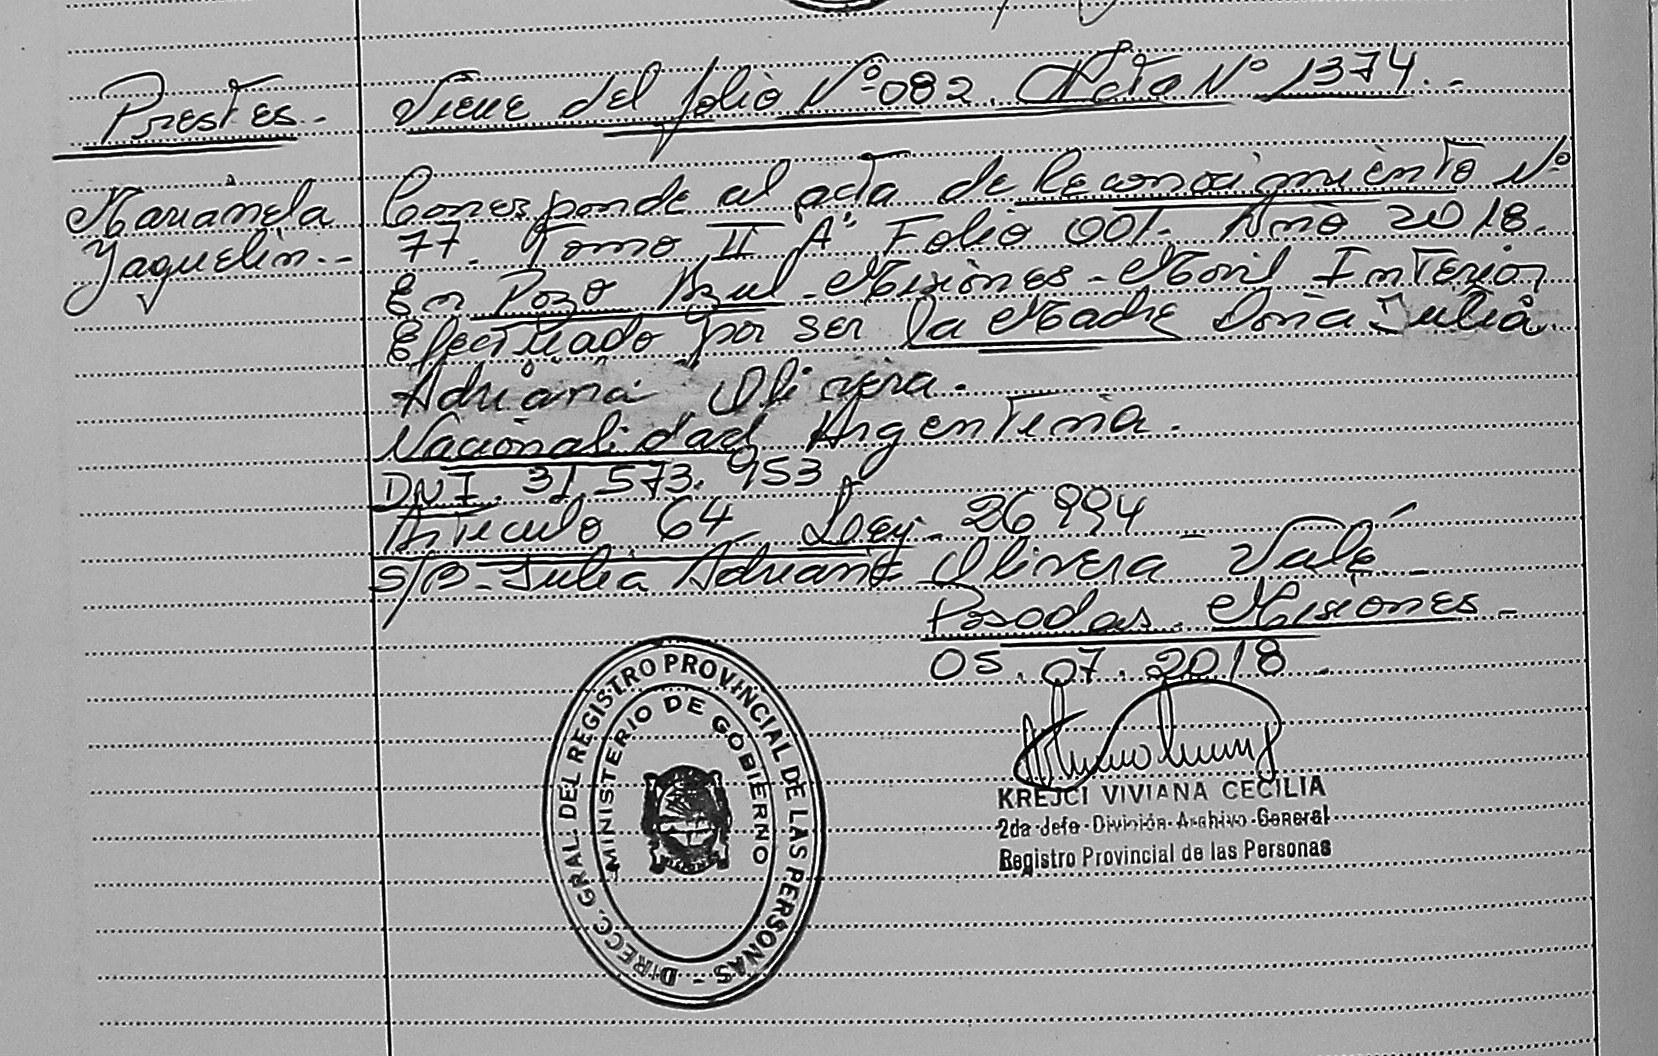 Prestes.-
Viene del folio Nº 082. Acta Nº 1374.-
Marianela
Yaquelin.--
Corresponde al acta de Reconocimiento Nº
77. Tomo II Aº Folio 001. Año 2018.
En Pozo Azul - Misiones - Movil Interior
Efectuado por ser la Madre Doña Julia
Adriana Olivera.
Nacionalidad Argentina.
DNI. 31.573.953
Articulo 64 Ley - 26994
S/B - Julia Adriana Olivera - Vale -
Posadas. Misiones -
05.07.2018 -
KREJCI VIVIANA CECILIA
2da-Jefe-División-Archivo-General
Registro Provincial de las Personas
DIRECC. GRAL. DEL REGISTRO PROVINCIAL DE LAS PERSONAS -
MINISTERIO DE GOBIERNO